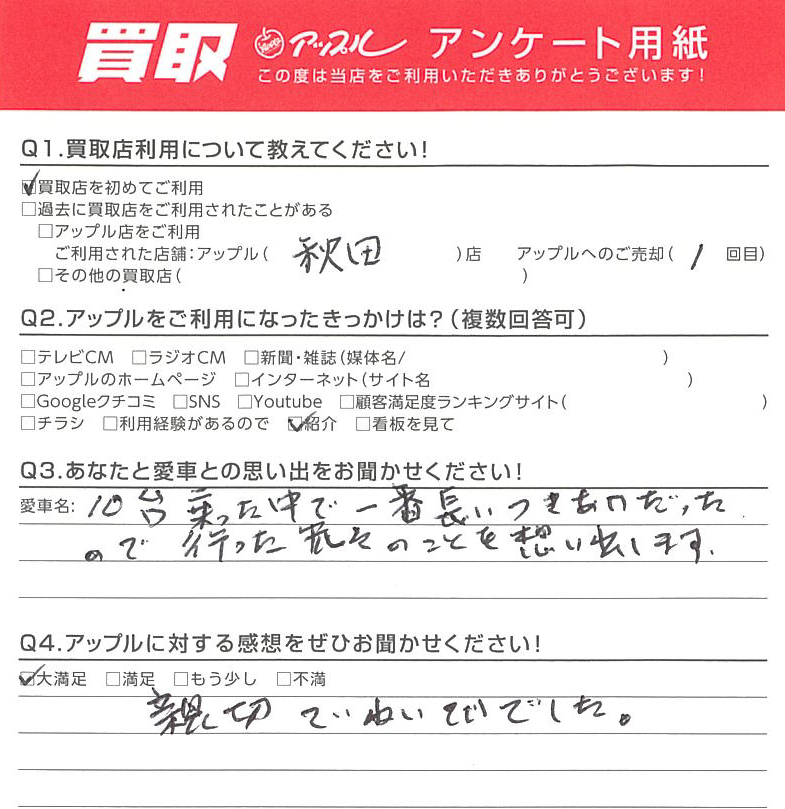 買取 アップル アンケート用紙
この度は当店をご利用いただきありがとうございます!
Q1.買取店利用について教えてください!
☑買取店を初めてご利用
□過去に買取店をご利用されたことがある
□アップル店をご利用
ご利用された店舗:アップル( 秋田 )店 アップルへのご売却( 1 回目)
□その他の買取店( )
Q2.アップルをご利用になったきっかけは?(複数回答可)
□テレビCM □ラジオCM □新聞・雑誌(媒体名/ )
□アップルのホームページ □インターネット(サイト名 )
□Googleクチコミ □SNS □Youtube □顧客満足度ランキングサイト( )
□チラシ □利用経験があるので ☑紹介 □看板を見て
Q3.あなたと愛車との思い出をお聞かせください!
愛車名: 10台乗った中で一番長いつきあいだった
ので行った のことを想い出します。
Q4.アップルに対する感想をぜひお聞かせください!
☑大満足 □満足 □もう少し □不満
親切ていねい でした。